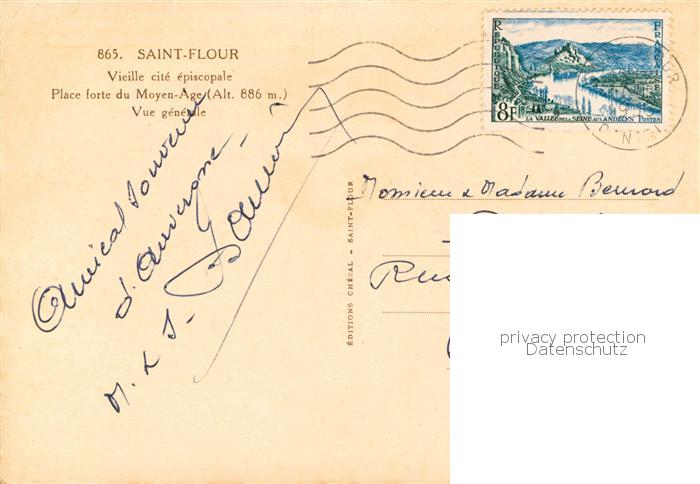 865. SAINT-FLOUR
Vieille cité épiscopale
Place forte du Moyen-Age (Alt. 886 m.)
Vue générale
Amical souvenir
d'Auvergne –
M. & J.
ÉDITIONS CHÉZAL – SAINT-FLOUR
REPUBLIQUE FRANÇAISE
8F
LA VALLEE DE LA SEINE AUX ANDELYS POSTES
Monsieur & Madame Bernard
Rue
privacy protection
Datenschutz